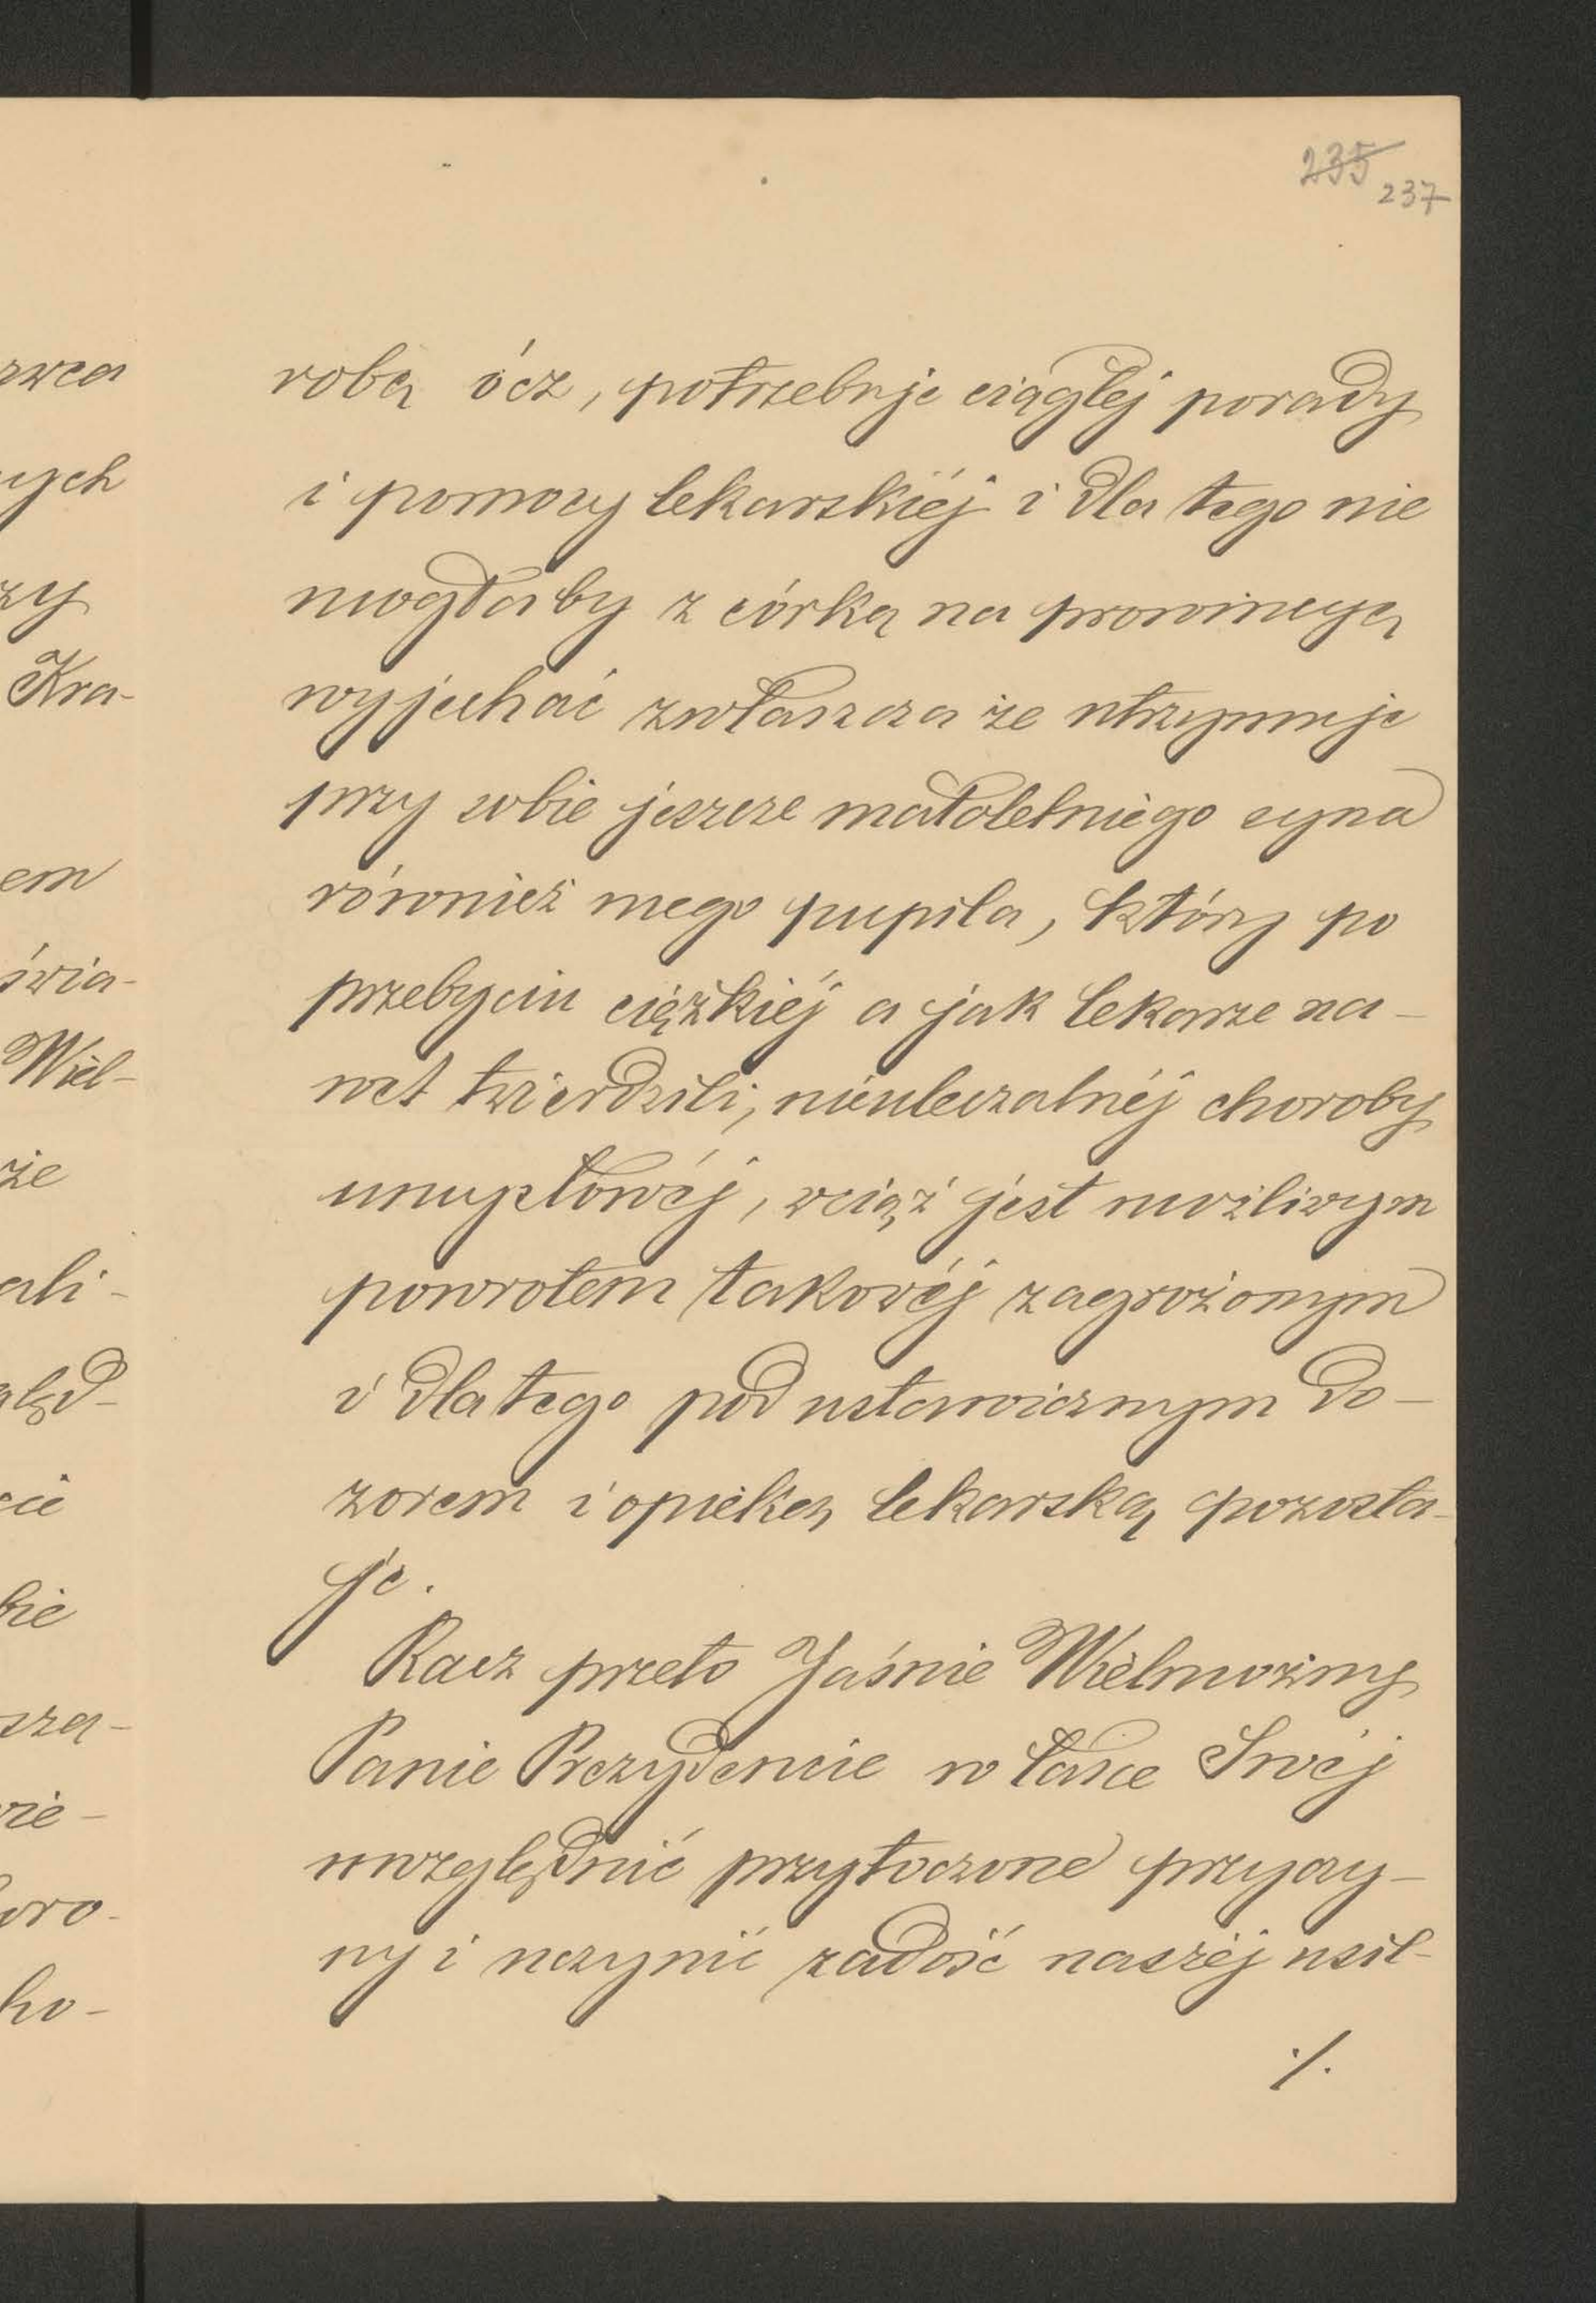 235
237
rwca
nych
zy
Kra-
em
świa-
Wiel-
że
ali-
ględ-
cie
bie
sza-
wie-
oro-
ho-
robą ócz, potrzebuje ciągłej porady
i pomocy lekarskiéj i dla tego nie
mogłaby z córką na prowincyę
wyjechać zwłaszcza że utrzymuje
przy sobie jeszcze małoletniego syna
również mego pupila, który po
przebyciu ciężkiéj a jak lekarze na-
wet twierdzili, nieuleczalnéj choroby
umysłowéj, wciąż jest możliwym
powrotem takowéj zagrożonym
i dla tego pod ustawicznym do-
zorem i opieką lekarską pozosta-
je.
Racz przeto Jaśnie Wielmożny
Panie Prezydencie w łasce Swéj
uwzględnić przytoczone przyczy-
ny i uczynić zadość naszéj usil-
./.